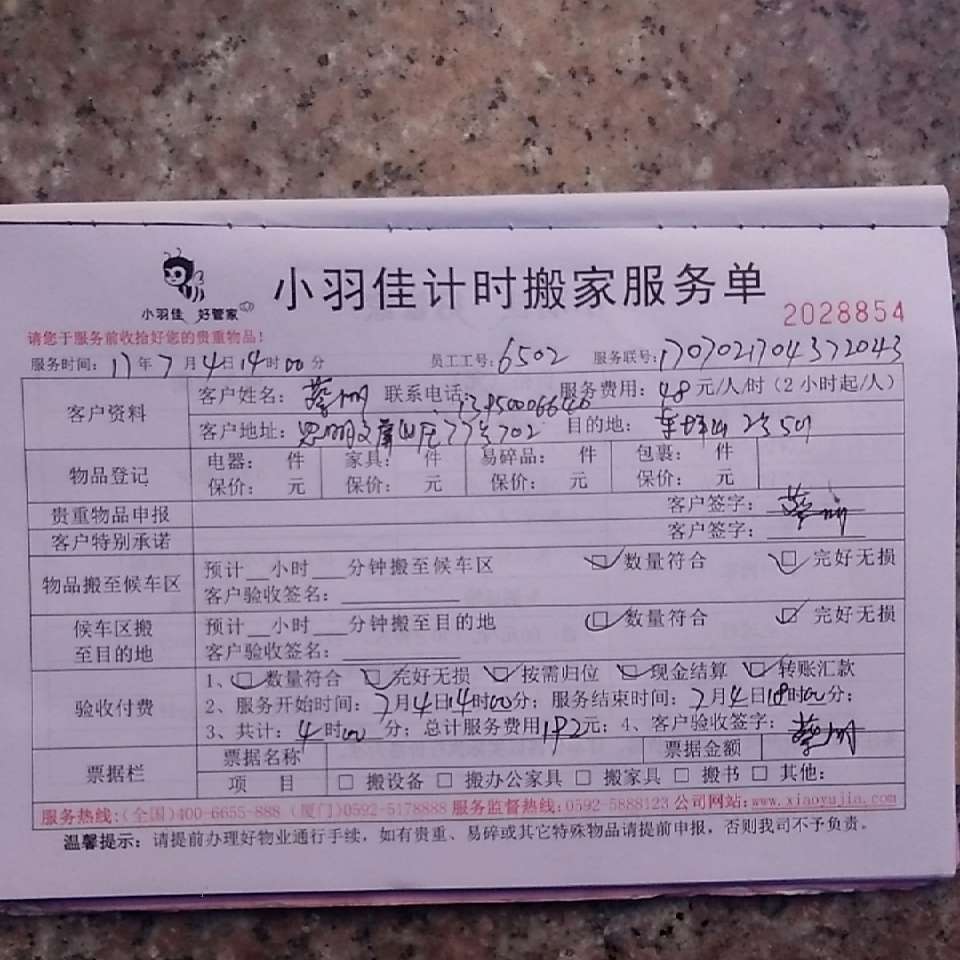 小羽佳 好管家
小羽佳计时搬家服务单
2028854
请您于服务前收拾好您的贵重物品！
服务时间：17年7月4日14时00分 员工工号：6502 服务联号：1707021704372043
客户资料
客户姓名：蔡 联系电话： 服务费用：48元/人/时（2小时起/人）
客户地址：思明 702 目的地： 501
物品登记
电器： 件 家具： 件 易碎品： 件 包裹： 件
保价： 元 保价： 元 保价： 元 保价： 元
贵重物品申报 客户签字：蔡
客户特别承诺 客户签字：
物品搬至候车区
预计__小时___分钟搬至候车区 ☑数量符合 ☑完好无损
客户验收签名：
候车区搬至目的地
预计__小时___分钟搬至目的地 ☑数量符合 ☑完好无损
客户验收签名：
验收付费
1、☑数量符合 ☑完好无损 ☑按需归位 ☑现金结算 ☑转账汇款
2、服务开始时间：7月4日14时00分；服务结束时间：7月4日18时00分；
3、共计：4时00分；总计服务费用192元；4、客户验收签字：蔡
票据栏
票据名称 票据金额
项 目 □ 搬设备 □ 搬办公家具 □ 搬家具 □ 搬书 □ 其他：
服务热线：（全国）400-6655-888（厦门）0592-5178888 服务监督热线：0592-5888123 公司网站：www.xiaoyujia.com
温馨提示：请提前办理好物业通行手续，如有贵重、易碎或其它特殊物品请提前申报，否则我司不予负责。